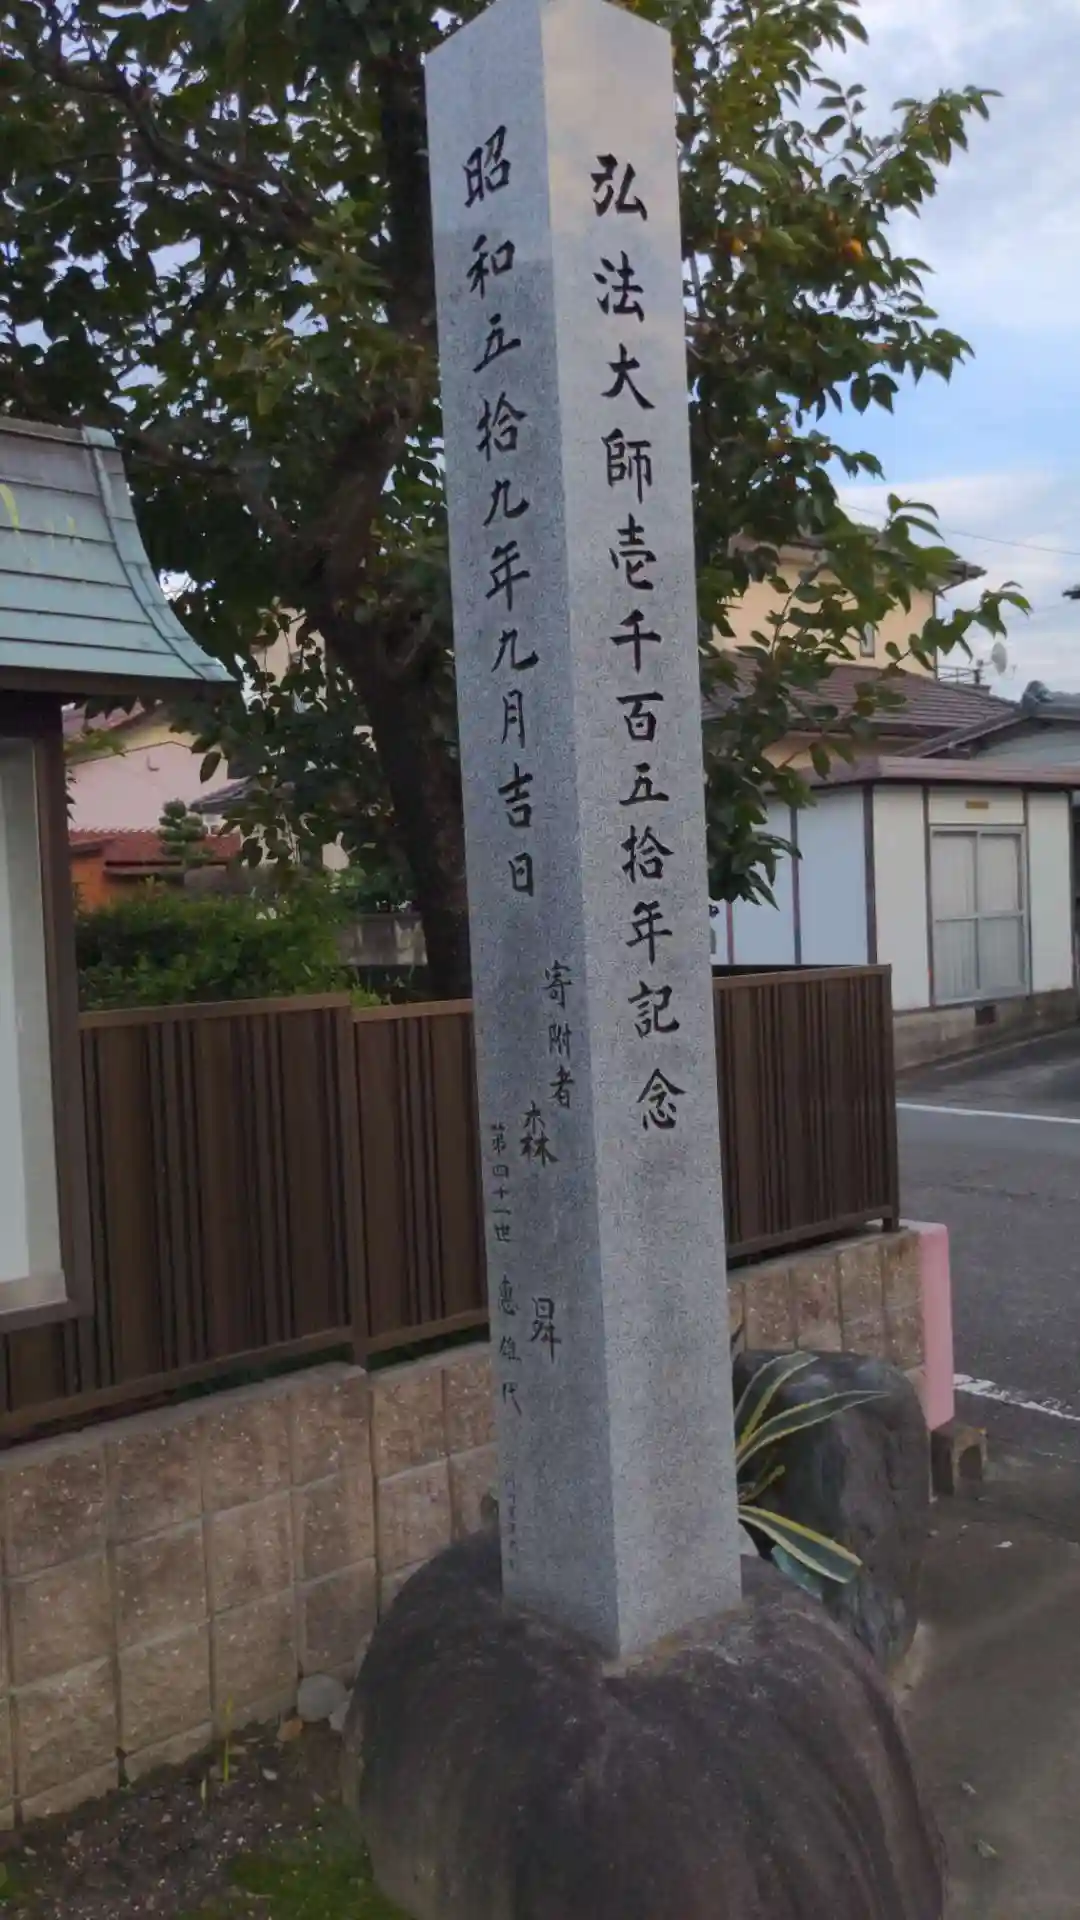 弘法大師壱千百五拾年記念
昭和五拾九年九月吉日
寄附者
森 昇
第四十一世 恵雄代